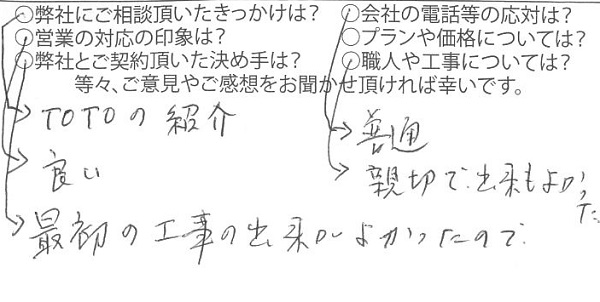 ○弊社にご相談頂いたきっかけは？ ○会社の電話等の応対は？
○営業の対応の印象は？ ○プランや価格については？
○弊社とご契約頂いた決め手は？ ○職人や工事については？
等々、ご意見やご感想をお聞かせ頂ければ幸いです。
TOTOの紹介
普通
良い
親切で出来もよかった
最初の工事の出来がよかったので